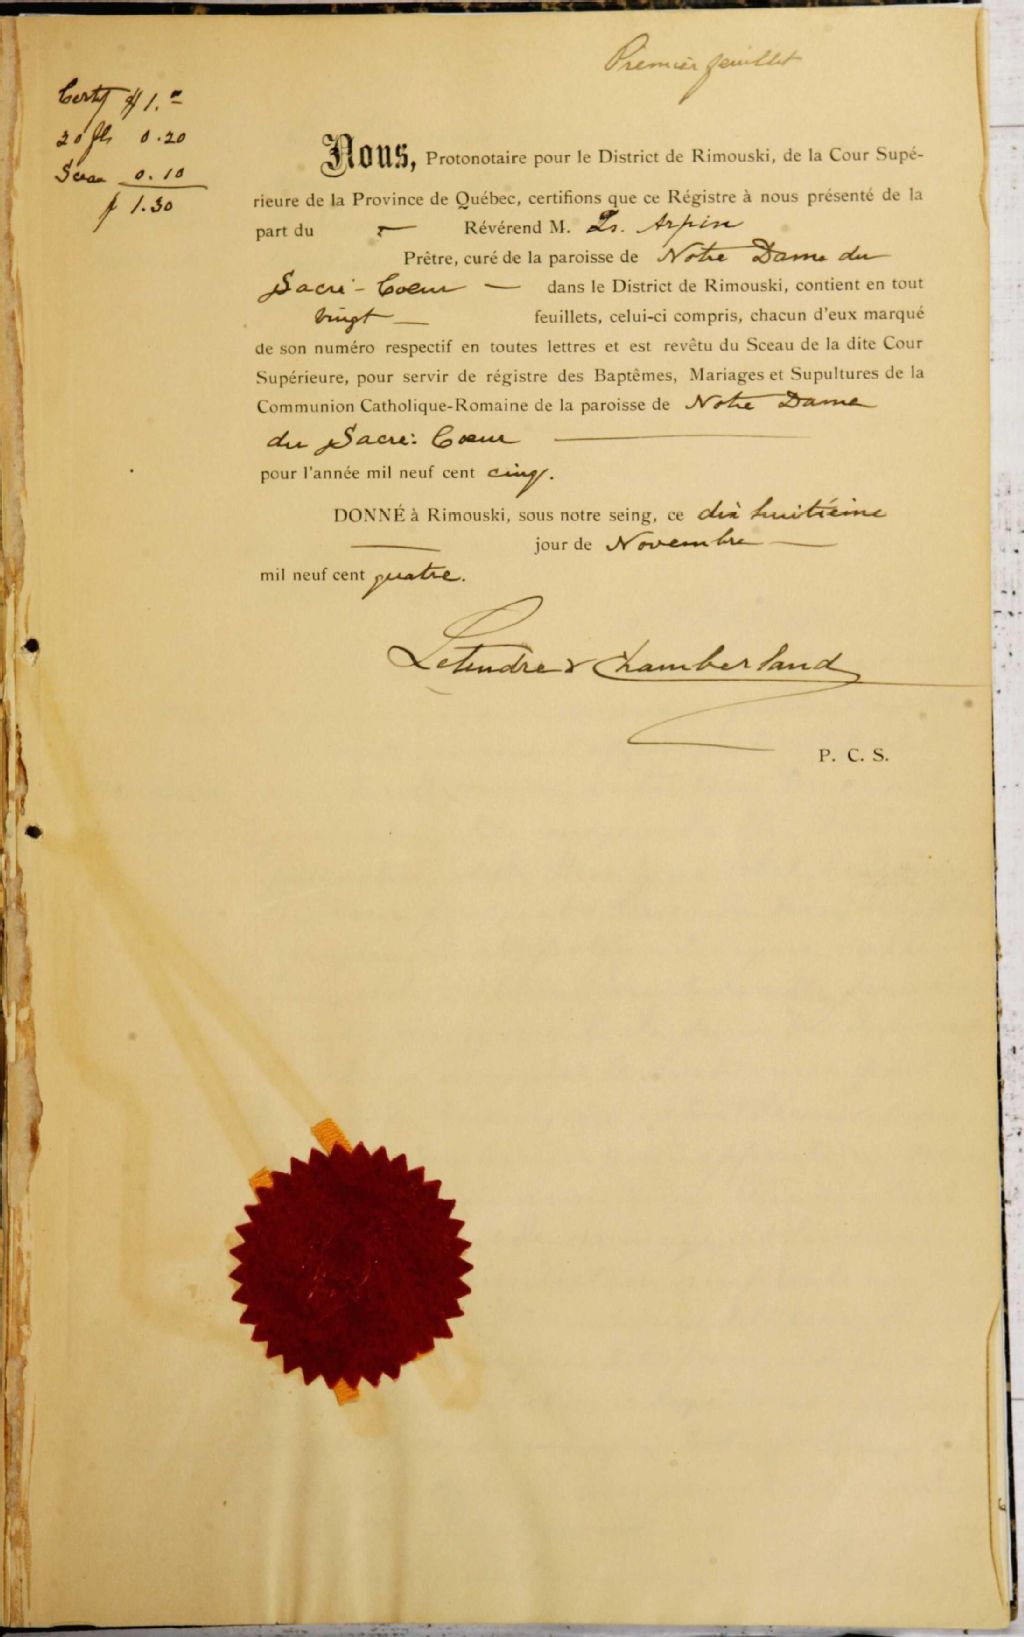 Premier feuillet
Certf $1.00
20 fls 0.20
Sceau 0.10
$ 1.30
Nous, Protonotaire pour le District de Rimouski, de la Cour Supé-
rieure de la Province de Québec, certifions que ce Régistre à nous présenté de la
part du — Révérend M. Ls. Arpin
Prêtre, curé de la paroisse de Notre Dame du
Sacré-Coeur — dans le District de Rimouski, contient en tout
vingt — feuillets, celui-ci compris, chacun d'eux marqué
de son numéro respectif en toutes lettres et est revêtu du Sceau de la dite Cour
Supérieure, pour servir de régistre des Baptêmes, Mariages et Supultures de la
Communion Catholique-Romaine de la paroisse de Notre Dame
du Sacré-Coeur —
pour l'année mil neuf cent cinq.
DONNÉ à Rimouski, sous notre seing, ce dix huitième
— jour de Novembre —
mil neuf cent quatre.
Letendre & Chamberland
P. C. S.